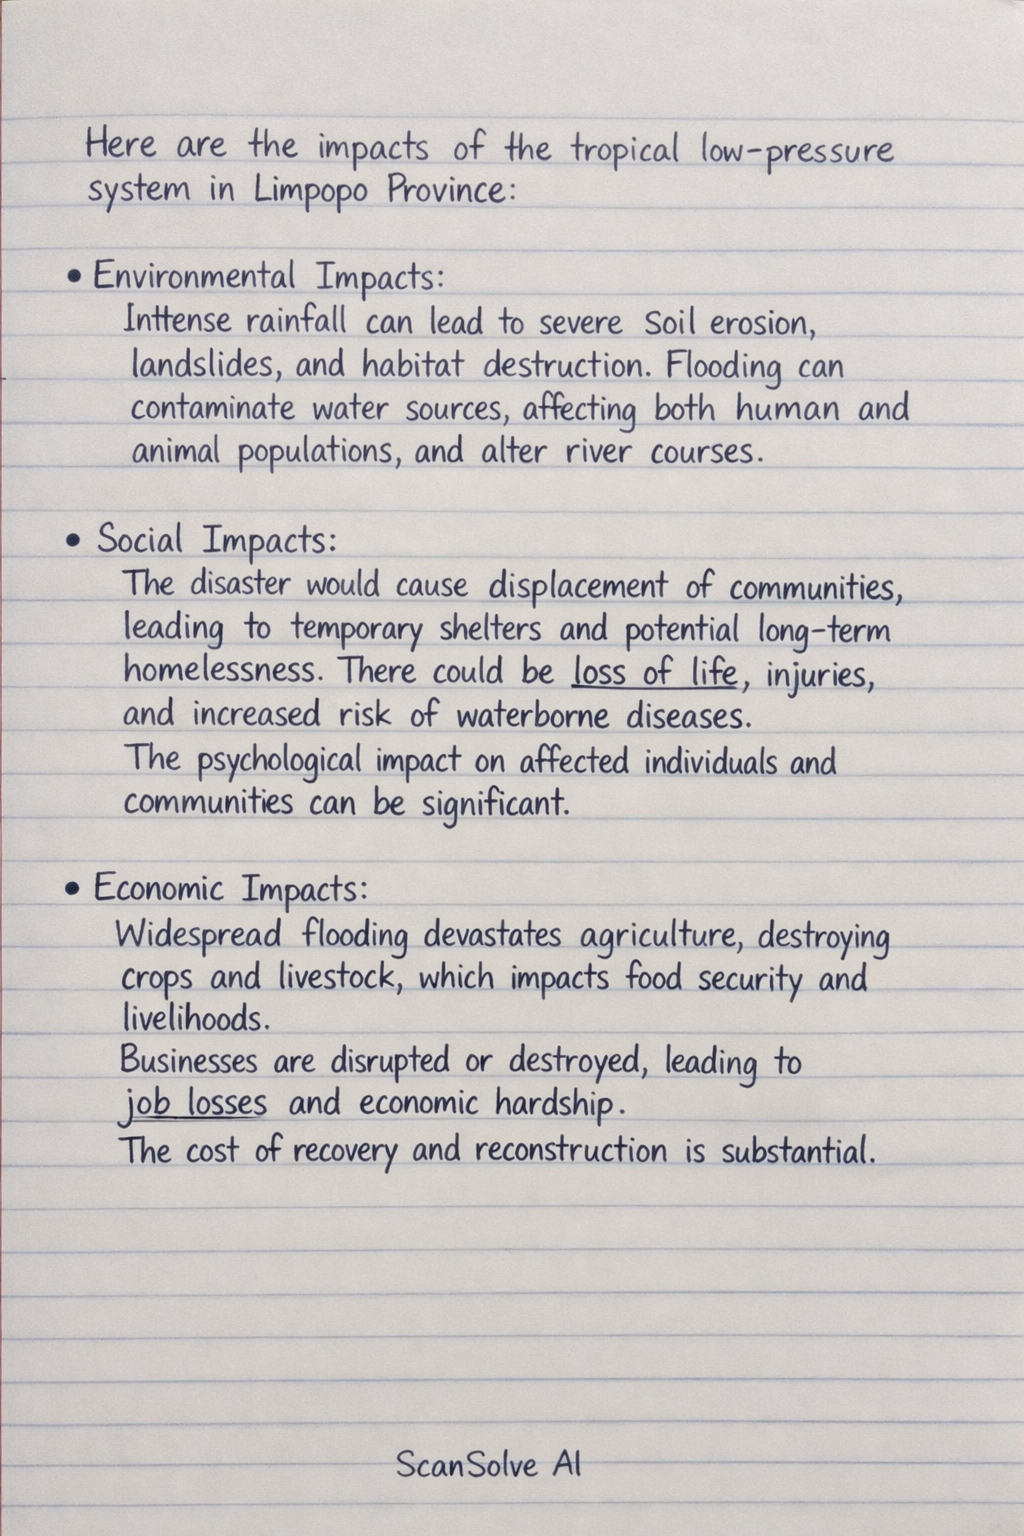 Here are the impacts of the tropical low-pressure
system in Limpopo Province:
• Environmental Impacts:
Inttense rainfall can lead to severe Soil erosion,
landslides, and habitat destruction. Flooding can
contaminate water sources, affecting both human and
animal populations, and alter river courses.
• Social Impacts:
The disaster would cause displacement of communities,
leading to temporary shelters and potential long-term
homelessness. There could be loss of life, injuries,
and increased risk of waterborne diseases.
The psychological impact on affected individuals and
communities can be significant.
• Economic Impacts:
Widespread flooding devastates agriculture, destroying
crops and livestock, which impacts food security and
livelihoods.
Businesses are disrupted or destroyed, leading to
job losses and economic hardship.
The cost of recovery and reconstruction is substantial.
ScanSolve AI